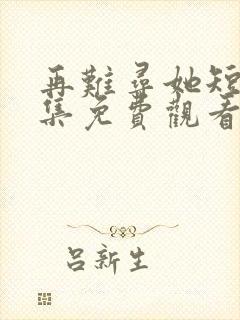 再難尋她短
集免費觀看
呂新生